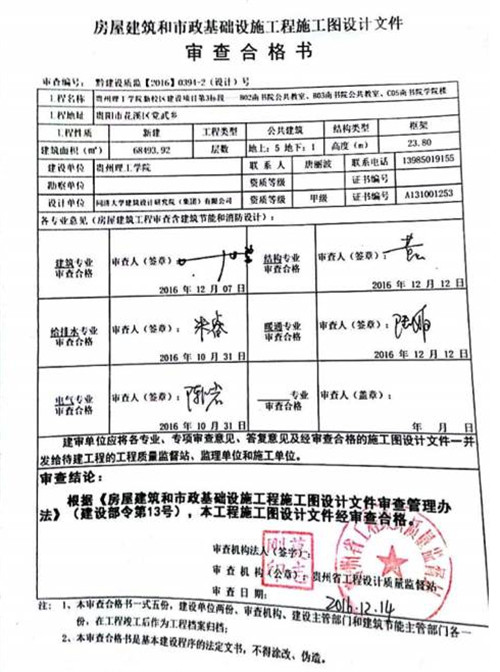 房屋建筑和市政基础设施工程施工图设计文件
审查合格书
审查编号: 黔建设质监【2016】0394-2（设计）号
工程名称 贵州理工学院新校区建设项目第3标段——B02南书院公共教室、B03南书院公共教室、C05南书院学院楼
工程地址 贵阳市花溪区党武乡
工程性质 新建 工程类型 公共建筑 结构类型 框架
建筑面积（m²） 68493.92 层数 地上: 5 地下: 1 高度（m） 23.80
建设单位 贵州理工学院 联系人 唐丽波 联系电话 13985019155
勘察单位 资质等级 证书编号
设计单位 同济大学建筑设计研究院（集团）有限公司 资质等级 甲级 证书编号 A131001253
各专业意见（房屋建筑工程审查含建筑节能和消防设计）:
建筑专业审查合格 审查人（签章） 2016年12月07日 结构专业审查合格 审查人（签章): 2016年12月12日
给排水专业审查合格 审查人（签章): 2016年10月31日 暖通专业审查合格 审查人（签章): 2016年12月12日
电气专业审查合格 审查人（签章): 2016年10月31日 专业审查合格 审查人（盖章): 年 月 日
建审单位应将各专业、专项审查意见、答复意见及经审查合格的施工图设计文件一并
发给待建工程的工程质量监督站、监理单位和施工单位。
审查结论:
根据《房屋建筑和市政基础设施工程施工图设计文件审查管理办
法》（建设部令第13号），本工程施工图设计文件经审查合格。
审查机构法人（签字）:
审查机构（公章）: 贵州省工程设计质量监督站
审查日期: 2016.12.14
注: 1、本审查合格书一式五份，建设单位两份、审查机构、建设主管部门和建筑节能主管部门各一
份，在工程竣工后作为工程档案归档;
2、本审查合格书是基本建设程序的法定文书，不得涂改、伪造。